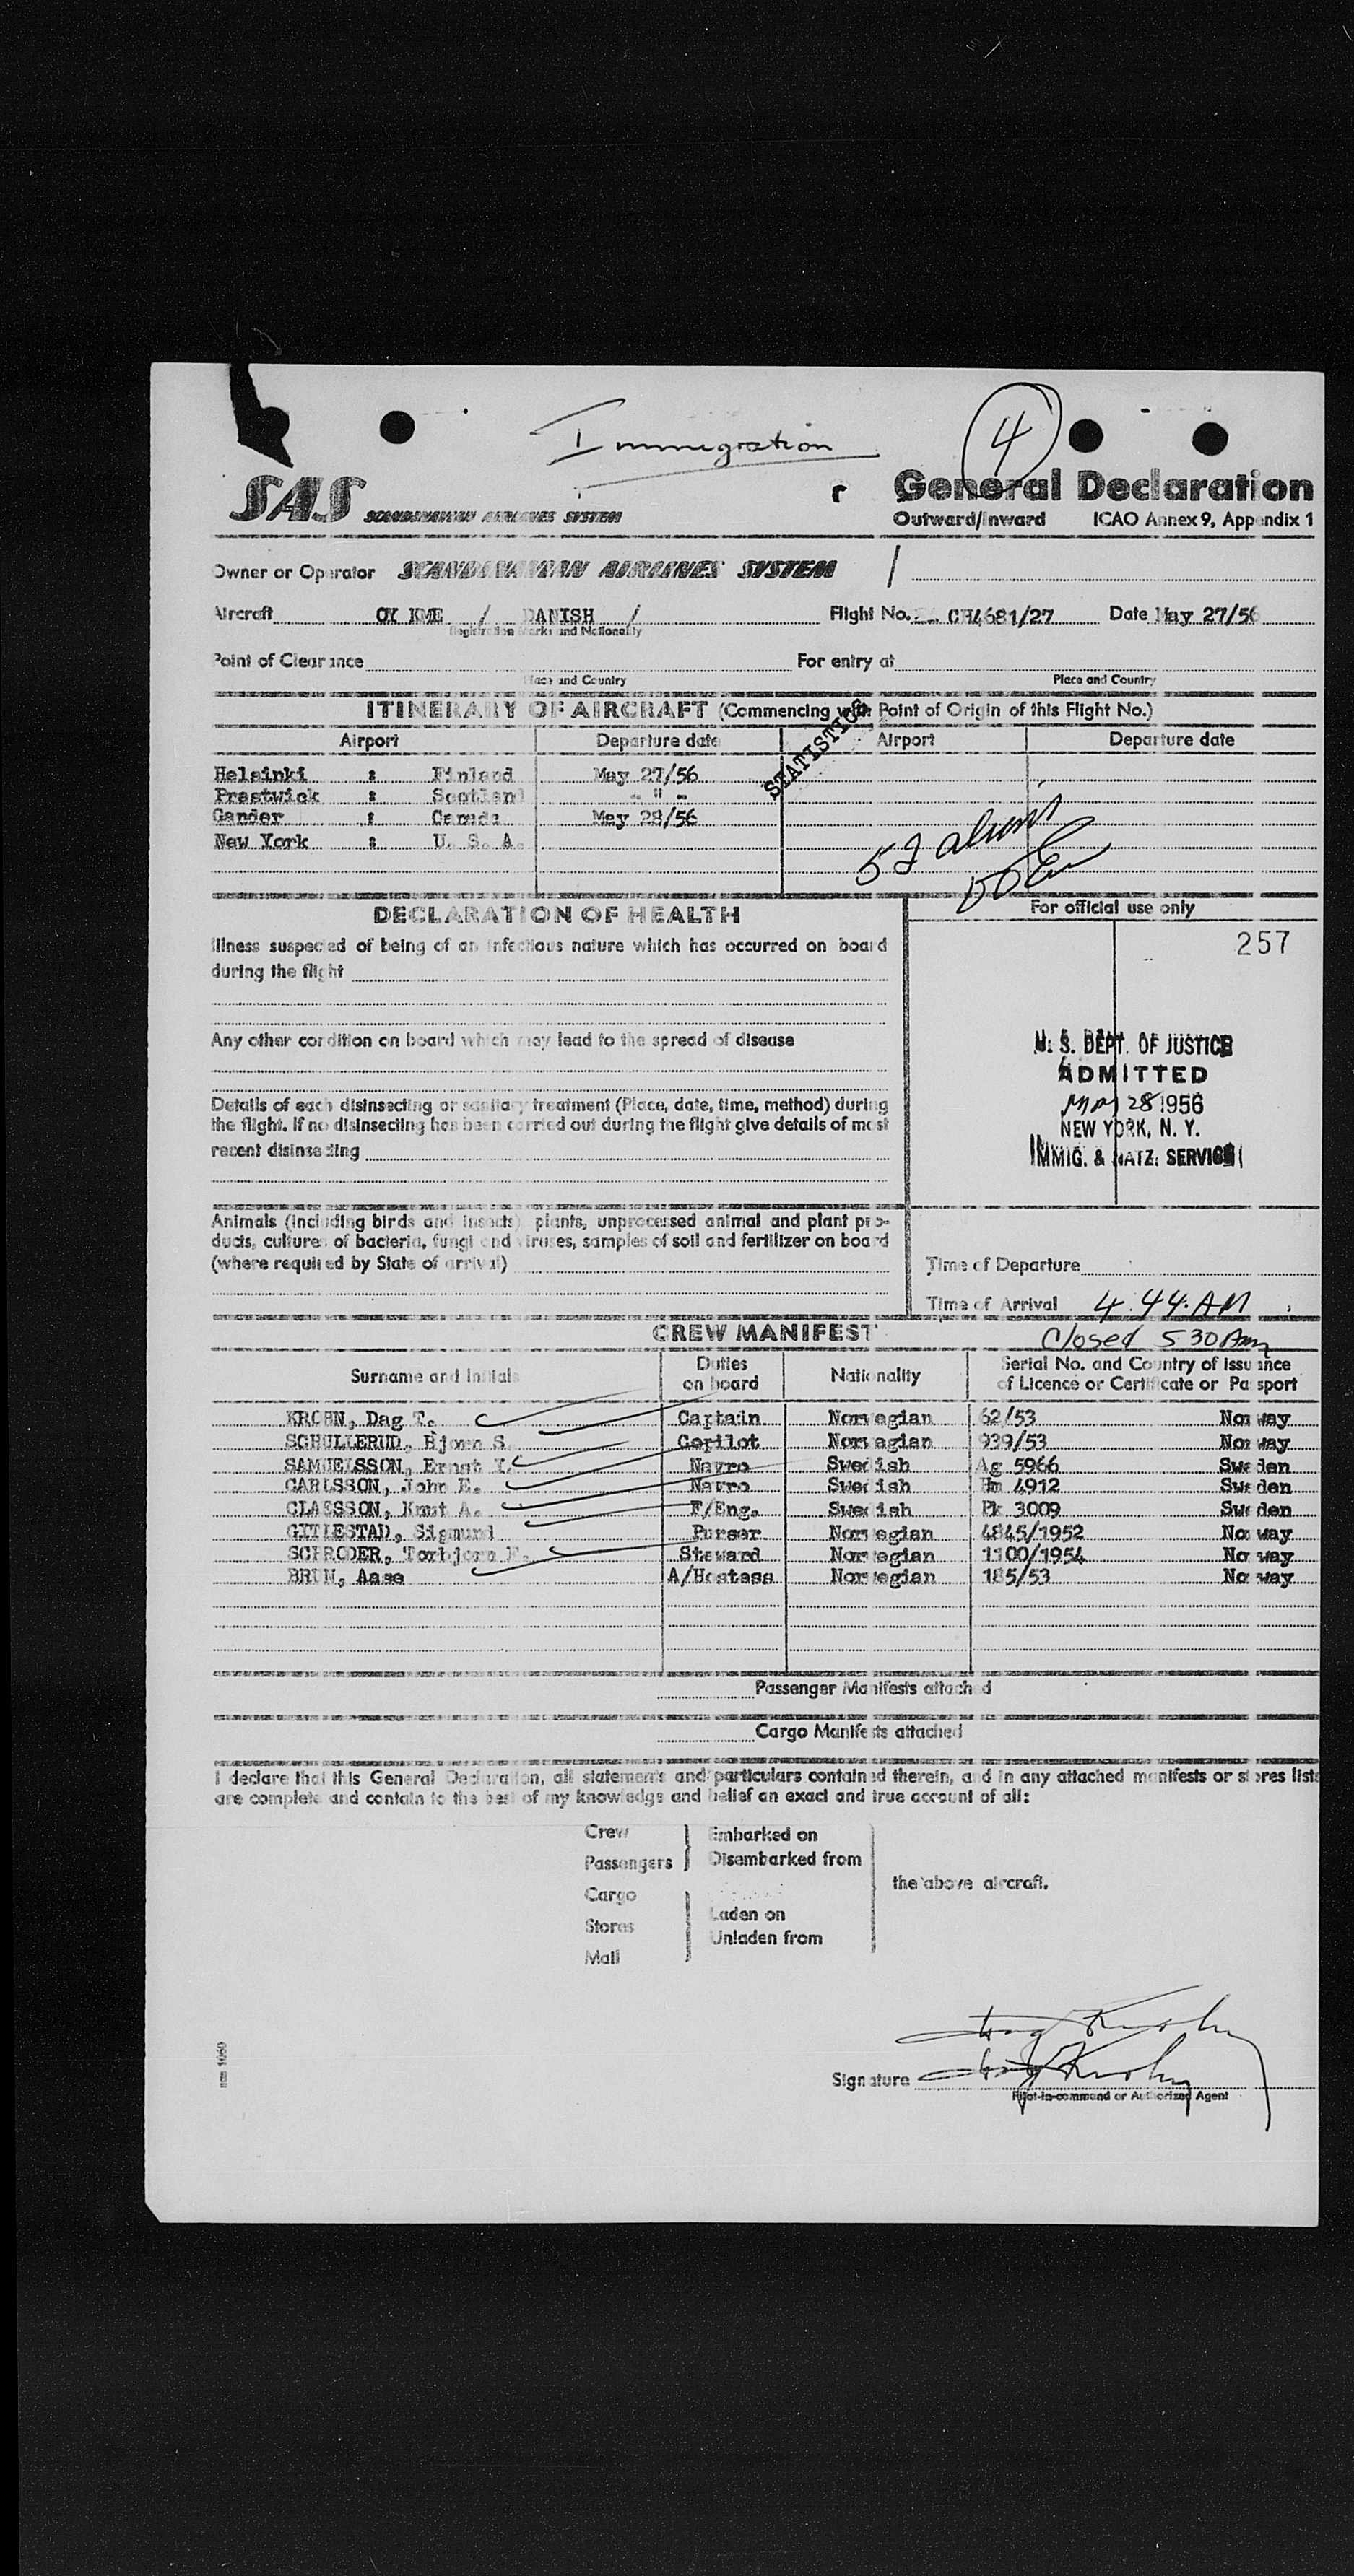 Immigration
4
SAS SCANDINAVIAN AIRLINES SYSTEM
General Declaration
Outward/Inward ICAO Annex 9, Appendix 1
Owner or Operator SCANDINAVIAN AIRLINES SYSTEM
Aircraft OY KME / DANISH / Flight No. CH4681/27 Date May 27/56
Registration Marks and Nationality
Point of Clearance For entry at
Place and Country Place and Country
ITINERARY OF AIRCRAFT (Commencing with Point of Origin of this Flight No.)
STATISTICS
Airport Departure date Airport Departure date
Helsinki : Finland May 27/56
Prestwick : Scotland " 
Gander : Canada May 28/56
New York : U. S. A.
52
DECLARATION OF HEALTH
For official use only
257
Illness suspected of being of an infectious nature which has occurred on board
during the flight
Any other condition on board which may lead to the spread of disease
U. S. DEPT. OF JUSTICE
ADMITTED
May 28 1956
NEW YORK, N. Y.
IMMIG. & NATZ. SERVICE
Details of each disinsecting or sanitary treatment (Place, date, time, method) during
the flight. If no disinsecting has been carried out during the flight give details of most
recent disinsecting
Animals (including birds and insects) plants, unprocessed animal and plant pro-
ducts, cultures of bacteria, fungi and viruses, samples of soil and fertilizer on board
(where required by State of arrival)
Time of Departure
Time of Arrival 4.44.AM
Closed 5 30 Am
CREW MANIFEST
Surname and Initials Duties on board Nationality Serial No. and Country of Issuance of Licence or Certificate or Passport
KROHN, Dag T. Captain Norwegian 62/53 Norway
SCHULLERUD, Bjorn S. Copilot Norwegian 939/53 Norway
SAMUELSSON, Ernst Y. Navro Swedish Ag 5966 Sweden
CARLSSON, John E. Navro Swedish Hm 4912 Sweden
CLAESSON, Knut A. F/Eng. Swedish Pk 3009 Sweden
GITLESTAD, Sigmund Purser Norwegian 4845/1952 Norway
SCHRODER, Torbjorn F. Steward Norwegian 1100/1954 Norway
BRUN, Aase A/Hostess Norwegian 185/53 Norway
Passenger Manifests attached
Cargo Manifests attached
I declare that this General Declaration, all statements and particulars contained therein, and in any attached manifests or stores lists
are complete and contain to the best of my knowledge and belief an exact and true account of all:
Crew Embarked on
Passengers Disembarked from
the above aircraft.
Cargo
Stores Laden on
Unladen from
Mail
Dag Krohn
Signature Dag Krohn
Pilot-in-command or Authorized Agent